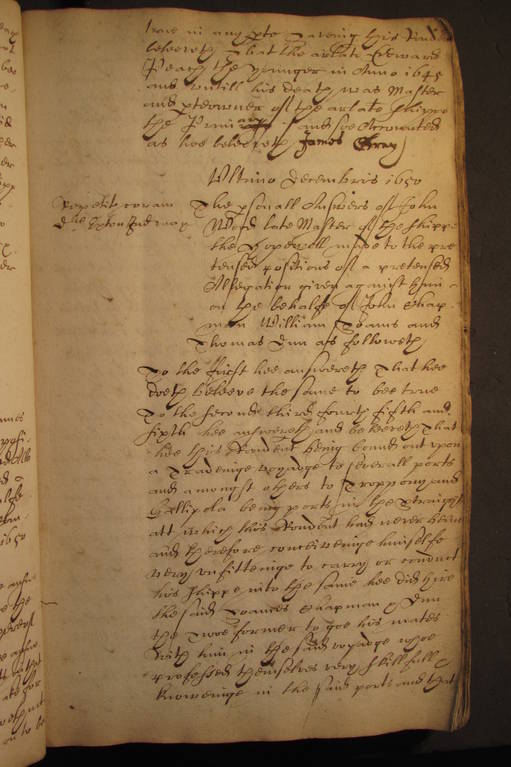 true in any pte saveing his
beleeveth That the arlate Edward
Peach the younger in Anno 1645
and untill his death was Master
and pte owner of the arlate shippe
the and soe Accounted
as hee beleeveth James Gray
Ultimo Decembris 1650
Repetit coram
The psonall Answers of John
Wood late Master of the shippe
the Hopewell made to the pre
tensed positions of a pretensed
Allegation given against him
on the behalfe of John Chap
man William Toams and
Thomas Dun as followeth
To the first hee answereth That hee
doth beleeve the same to bee true
To the second third fourth fifth and
sixth hee answereth and beleeveth That
hee this rondent being bound out upon
a Tradeinge voyadge to severall ports
and amongst others to and
Gallipola being ports in the straights
att which this rondent had never beene
and therefore conceiveinge himselfe
very unfittinge to carry or conduct
his shippe into the same hee did hire
the said Toames Chapman & Dun
the twoe former to goe his mates
with him in the said voyadge whoe
professed themselves very skillfull
knoweinge in the said ports and that